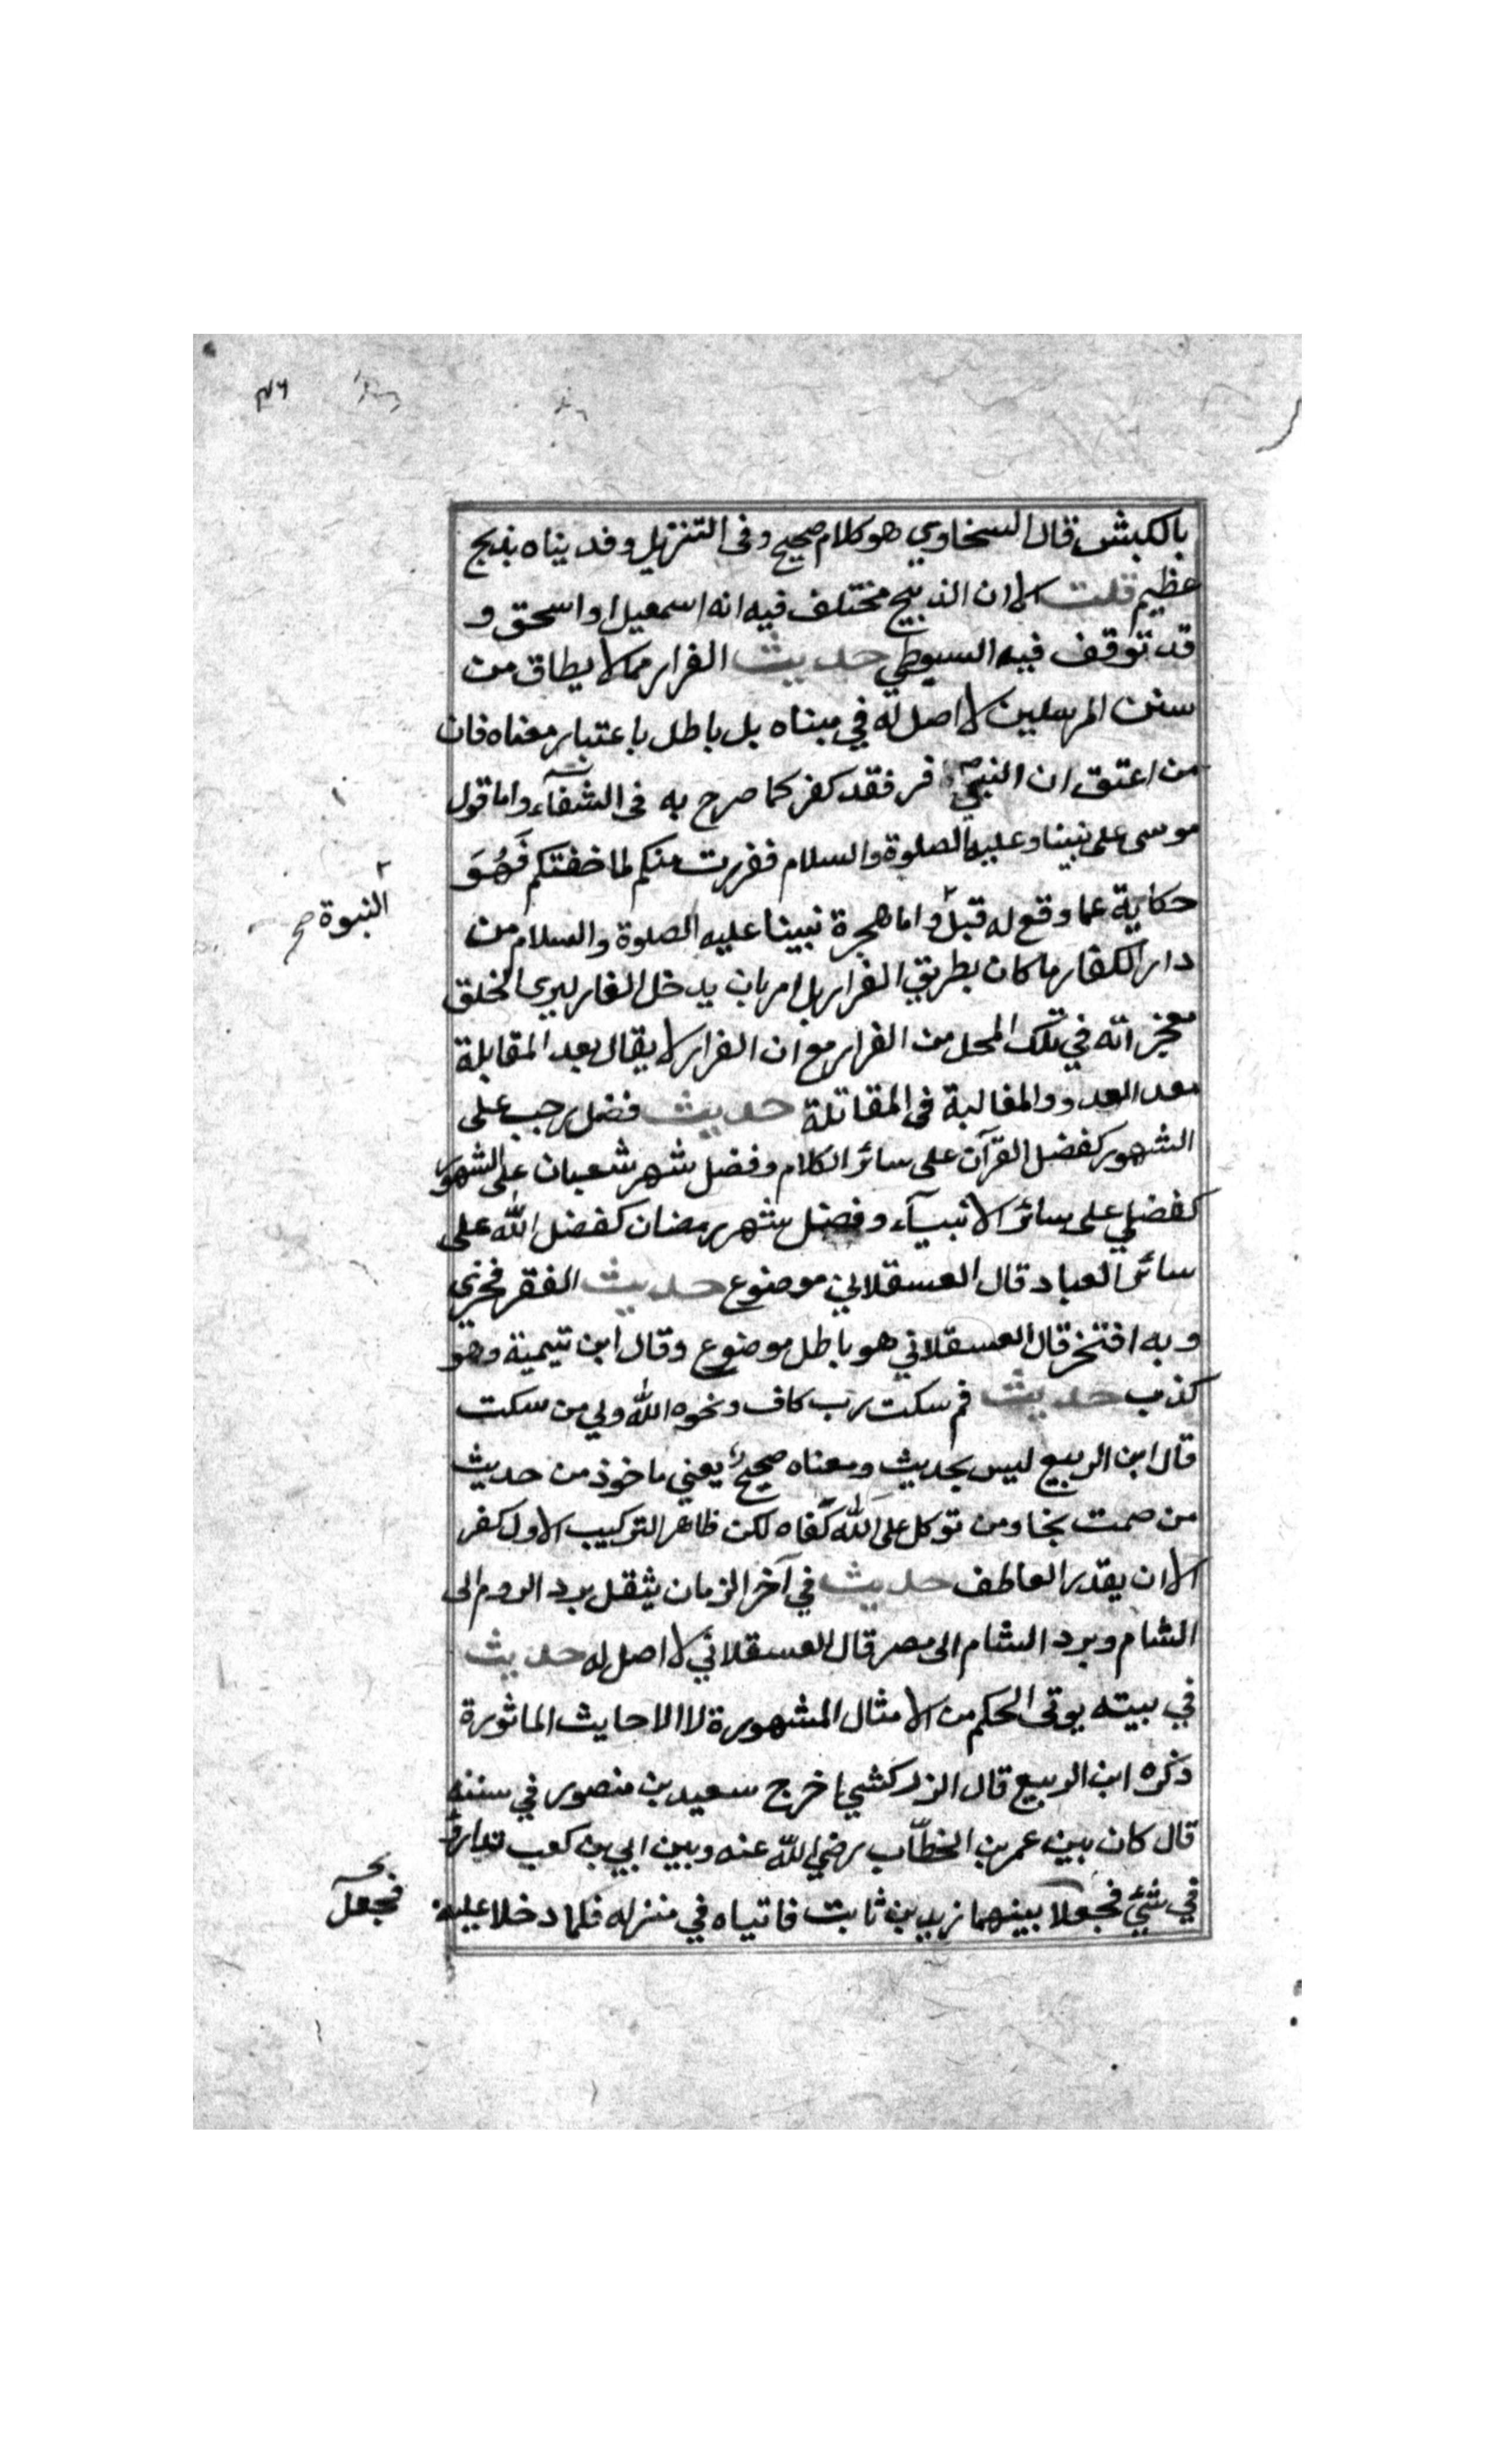 بالكبش قال السخاوي هو كلام صحيح وفى التنزيل وفديناه بذبح
عظيم قلت الا ان الذبيح مختلف فيه انه اسمعيل او اسحق و
قد توقف فيه السيوطي حديث الفرار مما لا يطاق من
سنن المرسلين لا اصل له في مبناه بل باطل باعتبار معناه فان
من اعتق ان النبي فر فقد كفر كما صرح به فى الشفآء واما قول
موسى على نبينا وعليه الصلوة والسلام ففررت منكم لما خفتكم فَهُوَ
حكاية عما وقع له قبل٢ واما هجرة نبينا عليه الصلوة والسلام من
٢ النبوة صح
دار الكفار ما كان بطريق الفرار بل امر بان يدخل الغار ليرى الخلق
معجزاته في تلك المحل من الفرار مع ان الفرار لا يقال بعد المقابلة
معد العدو والمغالبة فى المقاتلة حديث فضل رجب على
الشهور كفضل القرآن على سائر الكلام وفضل شهر شعبان على الشهور
كفضلي على سائر الانبيآء وفضل شهر رمضان كفضل الله على
سائر العباد قال العسقلاني موضوع حديث الفقر فخري
وبه افتخر قال العسقلاني هو باطل موضوع وقال ابن تيمية وهو
كذب حديث فم سكت رب كاف ونحوه الله ولي من سكت
قال ابن الربيع ليس بحديث ومعناه صحيح يعني ماخوذ من حديث
من صمت نجا ومن توكل على الله كفاه لكن ظاهر التركيب الاول كفر
الا ان يقدر العاطف حديث في آخر الزمان يثقل برد الروم الى
الشام وبرد الشام الى مصر قال العسقلاني لا اصل له حديث
في بيته يوتى الحكم من الامثال المشهورة لا الاحايث الماثورة
ذكره ابن الربيع قال الزركشي اخرج سعيد بن منصور في سننه
قال كان بين عمر بن الخطّاب رضي الله عنه وبين ابي بن كعب تدارؤ
في شئ فجعلا بينهما زيد بن ثابت فاتياه في منزله فلما دخلا عليه
فجعل